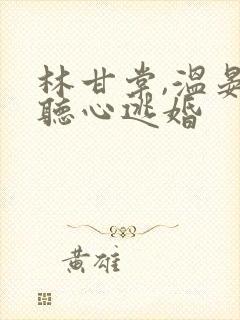 林甘棠,溫晏
聽心逃婚
黃雄